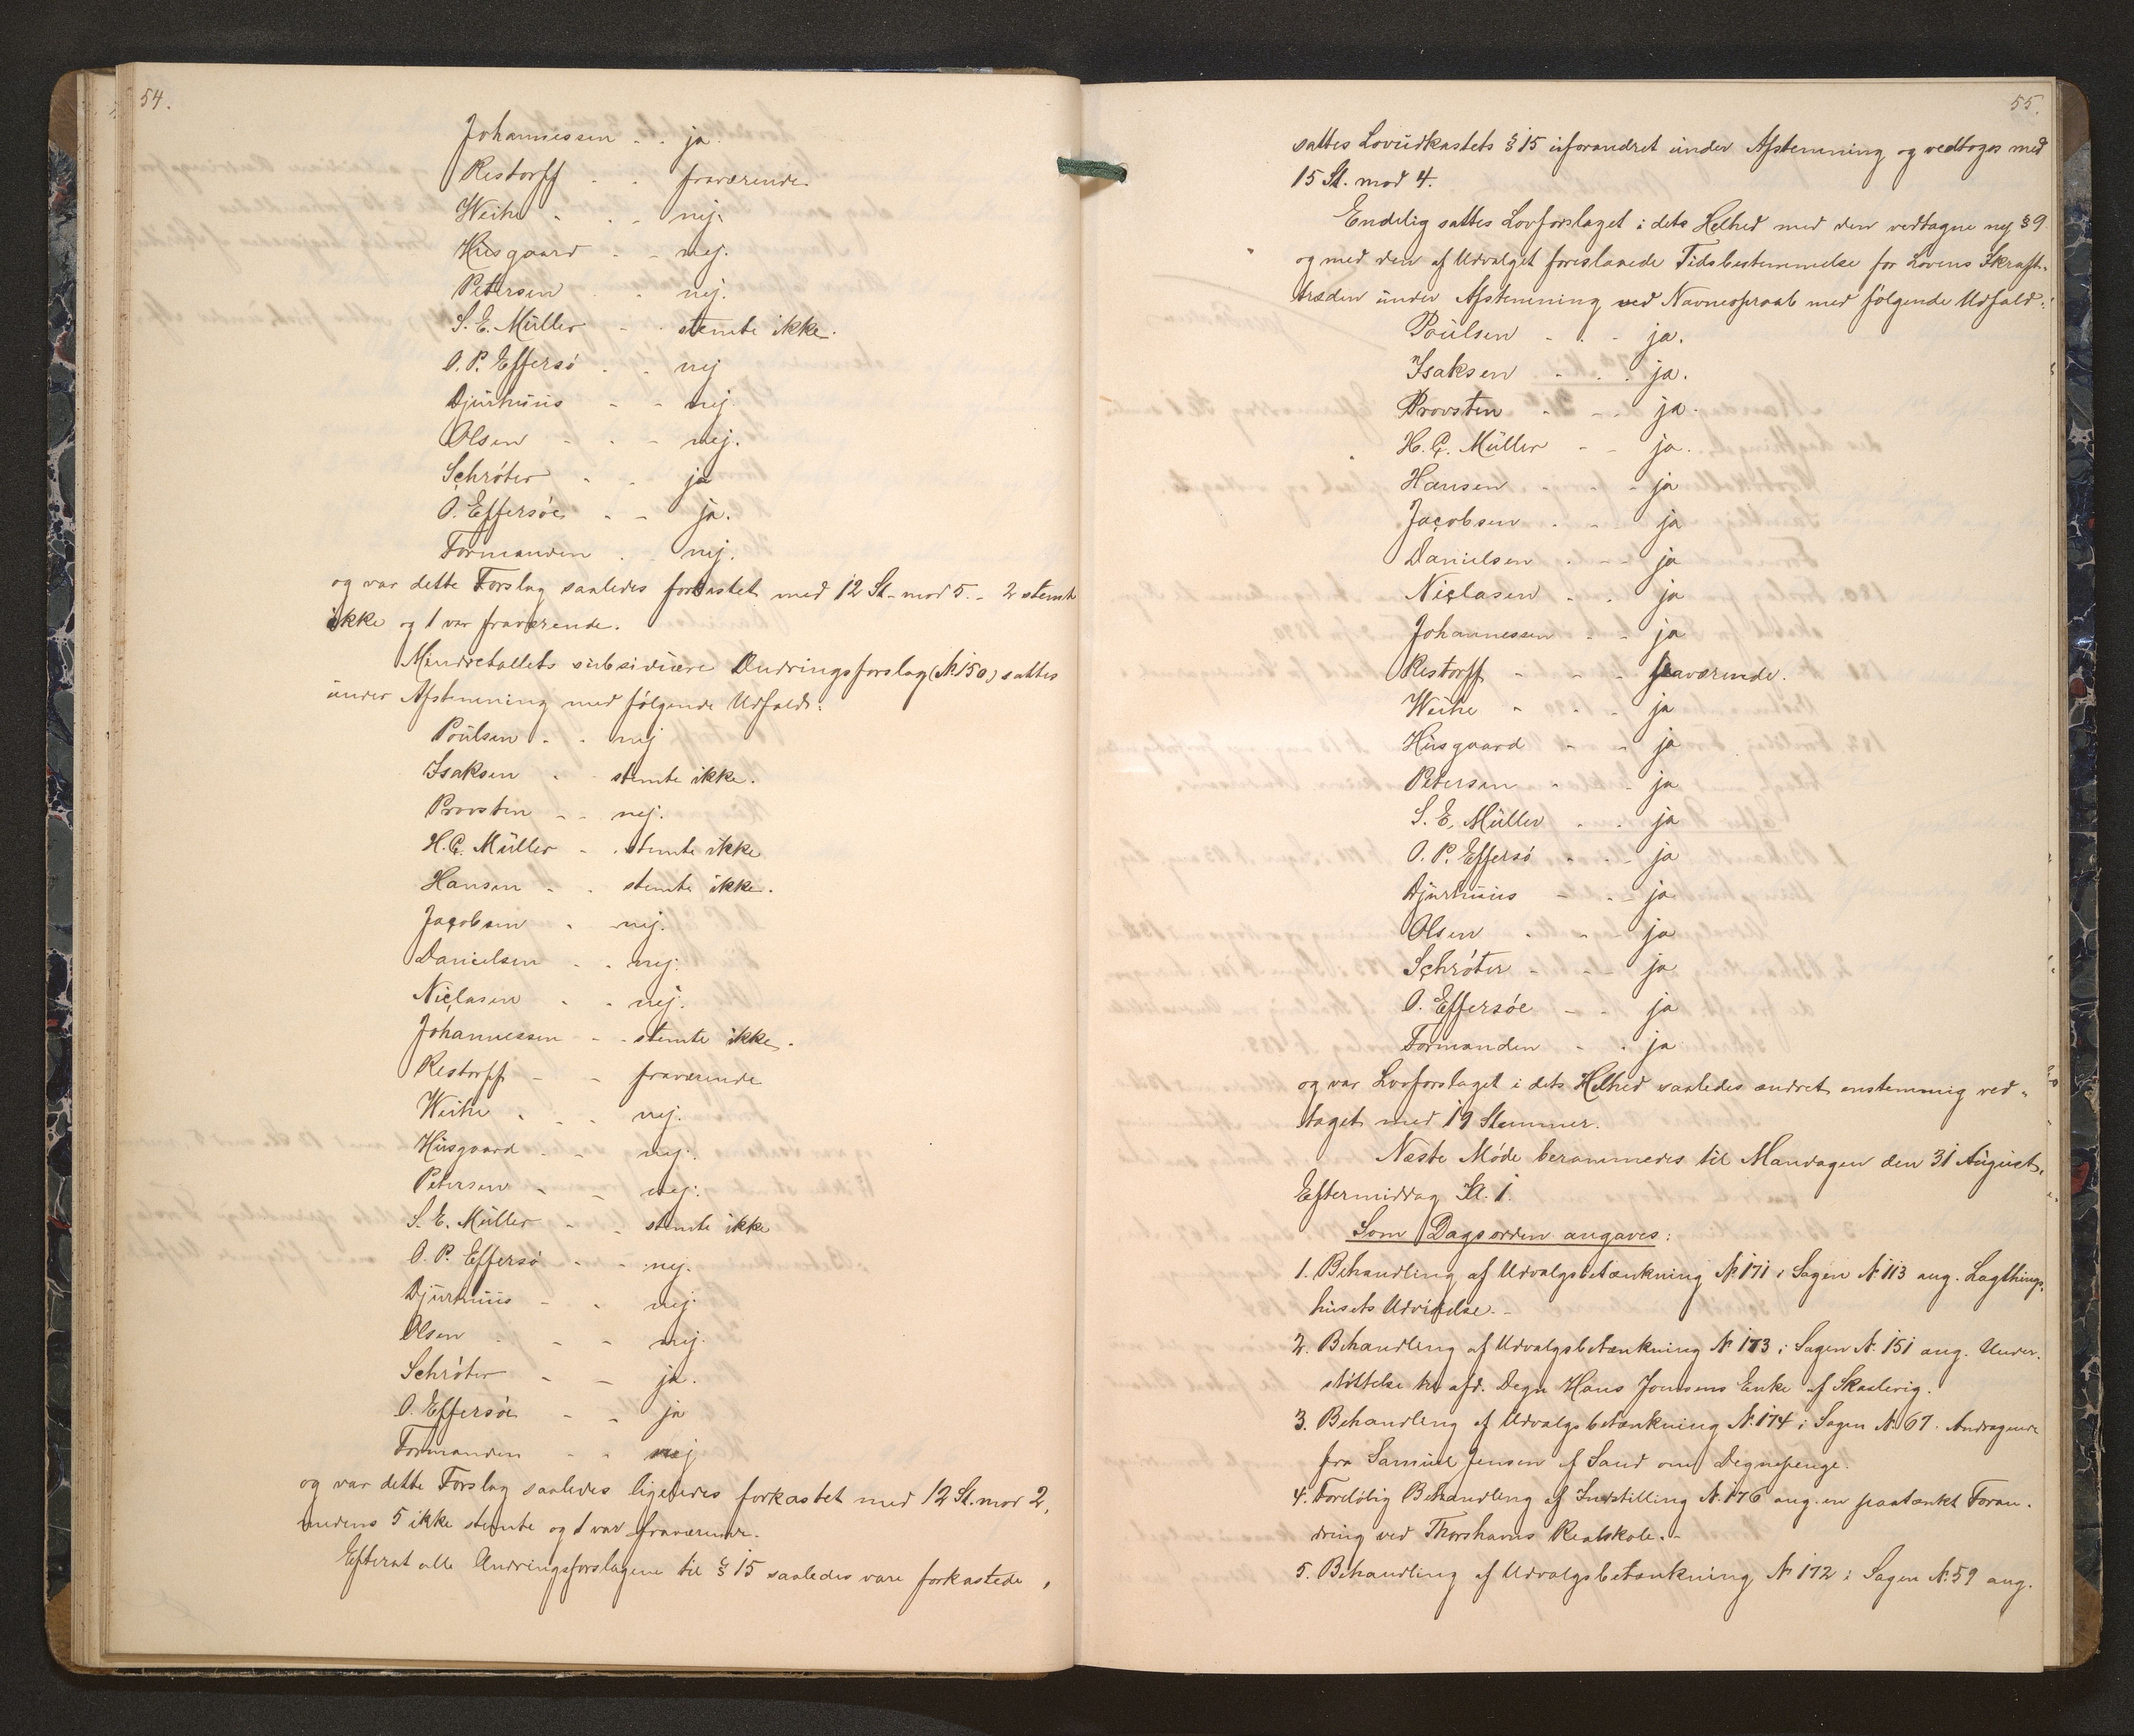 54.
Johannessen - - ja.
Restorff - - fraværende.
Weihe - - nej.
Husgaard - - nej.
Petersen - - nej.
S. E. Müller - - stemte ikke.
O. P. Effersø - - nej
Djurhuus - - nej.
Olsen - - - nej.
Schrøter - - ja
O. Effersøe - - ja.
Formanden - nej.
og var dette Forslag saaledes forkastet med 12 St. mod 5. - 2 stemte
ikke og 1 var fraværende.
Mindretallets subsidiære Ændringsforslag (N. 150) sattes
under Afstemning med følgende Udfald:
Poulsen - - nej
Isaksen - - stemte ikke.
Provsten - - nej.
H. C. Müller - - stemte ikke
Hansen - - stemte ikke.
Jacobsen - - nej.
Danielsen - - nej.
Niclasen - - nej.
Johannessen - - stemte ikke.
Restorff - - fraværende
Weihe - - - nej.
Husgaard - - nej.
Petersen - - nej.
S. E. Müller - - stemte ikke
O. P. Effersø - - nej.
Djurhuus - - nej
Olsen - - - nej.
Schrøter - - ja.
O. Effersøe - - ja
Formanden - - nej
og var dette Forslag saaledes ligeledes forkastet med 12 St. mod 2,
medens 5 ikke stemte og 1 var fraværende.
Efterat alle Ændringsforslagene til § 15 saaledes vare forkastede,
55.
sattes Lovudkastets § 15 uforandret under Afstemning og vedtoges med
15 St. mod 4.
Endelig sattes Lovforslaget i dets Helhed med den vedtagne ny § 9
og med den af Udvalget foreslaaede Tidsbestemmelse for Lovens Ikraft-
træden under Afstemning ved Navneopraab med følgende Udfald:
Poulsen - - - ja.
Isaksen - - - ja.
Provsten - - - ja.
H. C. Müller - - ja.
Hansen - - - ja
Jacobsen - - - ja
Danielsen - - - ja
Niclasen - - ja
Johannessen - - ja
Restorff - - - fraværende.
Weihe - - - ja
Husgaard - - ja
Petersen - - ja
S. E. Müller - - ja
O. P. Effersø - - - ja
Djurhuus - - - ja
Olsen - - - ja
Schrøter - - - ja
O. Effersøe - - ja
Formanden - - ja
og var Lovforslaget i dets Helhed saaledes ændret enstemmig ved-
taget med 19 Stemmer.
Næste Møde berammedes til Mandagen den 31 August,
Eftermiddag Kl. 1.
Som Dagsorden angaves:
1. Behandling af Udvalgsbetænkning N. 171 i Sagen N. 113 ang. Lagthings-
husets Udvidelse. -
2. Behandling af Udvalgsbetænkning N. 173 i Sagen N. 151 ang. Under-
støttelse til afd. Degn Hans Joensens Enke af Skaalevig.
3. Behandling af Udvalgsbetænkning N. 174 i Sagen N. 67. Andragende
fra Samuel Jensen af Sand om Degnepenge.
4. Foreløbig Behandling af Indstilling N. 176 ang. en paatænkt Foran-
dring ved Thorshavns Realskole. -
5. Behandling af Udvalgsbetænkning N. 172 i Sagen N. 59 ang.